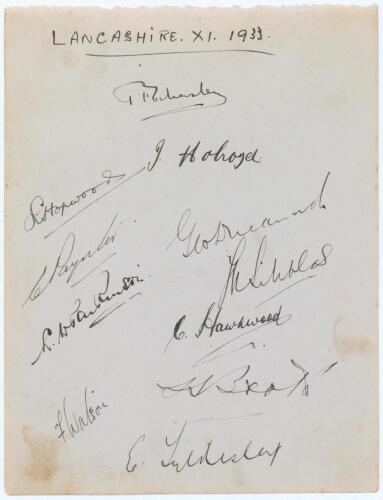 LANCASHIRE. XI. 1933.
P T Eckersley
J Holroyd
L. Hopwood
Geo Duckworth
E Paynter
L. W Parkinson
C. Hawkwood
F Watson
E. Tyldesley